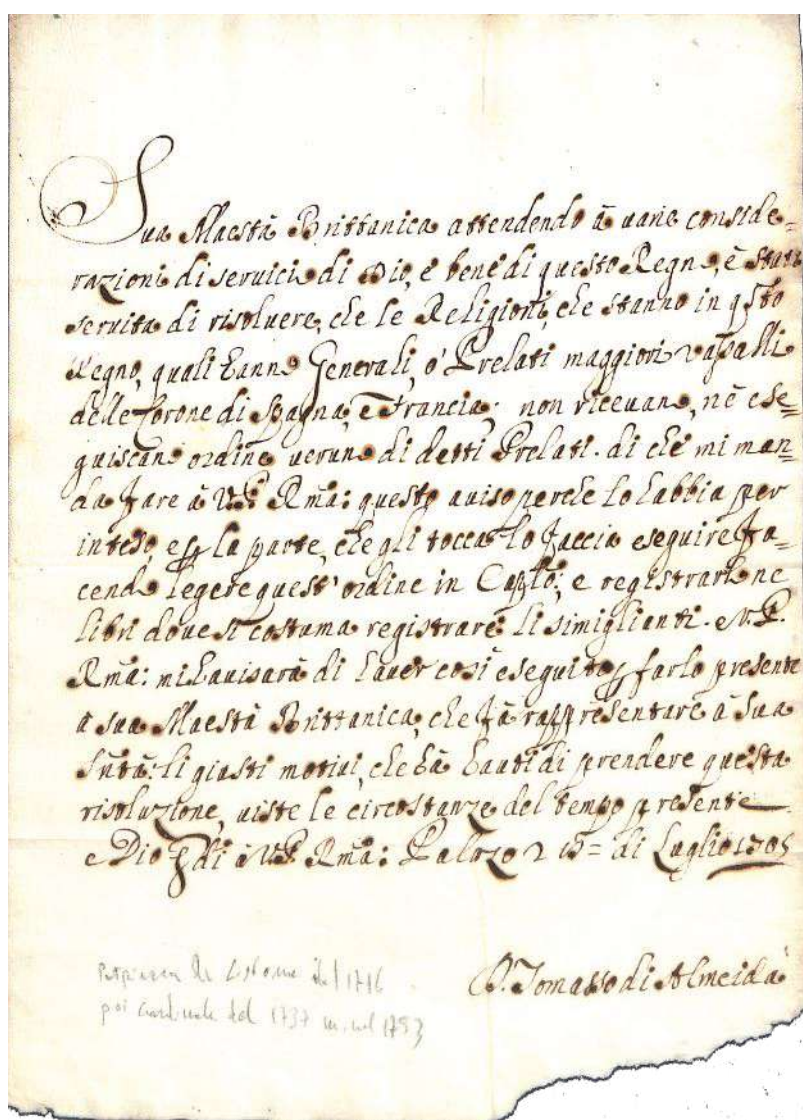 Sua Maestà Brittanica attendendo à uarie conside=
razioni di seruicio di Dio, e bene di questo Regno, è stata
seruita di risoluere, che le Religioni, che stanno in qsto
Regno, quali hanno Generali, o' Prelati maggiori vassalli
delle Corone di Spagna, e Francia; non riceuano, nè ese=
guiscano ordine ueruno di detti Prelati. di che mi man=
da fare à V.P. Rma: questo auiso perche lo habbia per
inteso, e p la parte, che gli tocca lo faccia eseguire fa=
cendo legere quest' ordine in Caplo; e registrarlo ne
libri doue si costuma registrare li simiglianti. e V.P.
Rma: mi hauisarà di hauer così eseguito p farlo presente
à sua Maestà Brittanica, che fà rappresentare à Sua
Sntà: li giusti motiui, che hà hauti di prendere questa
risoluzione, uiste le circostanze del tempo presente
e Dio gdi à V.P. Rma: Palazo di Luglio 1705
D. Tomasso di Almeida
del 1716
poi Cardinale del 1737 m. nel 1753